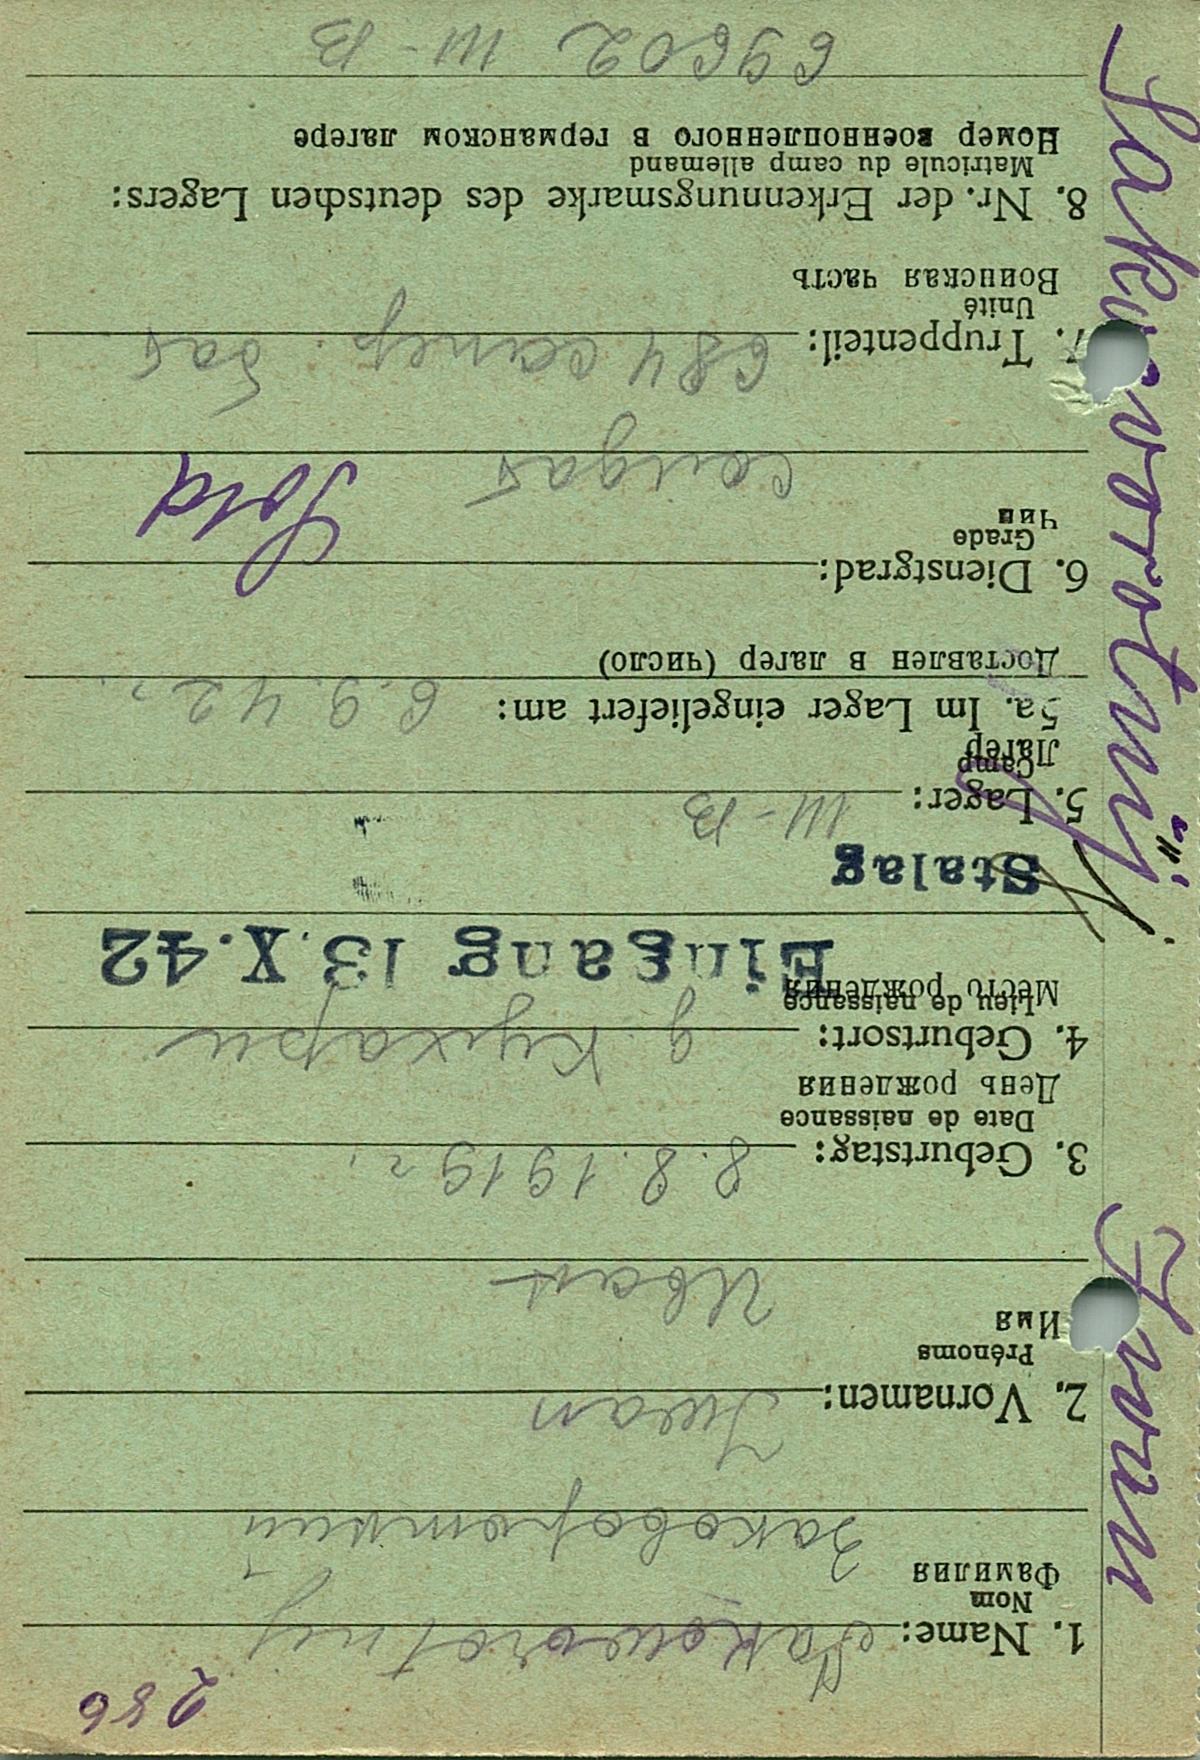 286
1. Name: Sakoworotnyj
Nom
Фамилия
Заковоротний
2. Vornamen: Iwan
Prénoms
Имя
Иван
3. Geburtstag: 8.8.1919 г.
Date de naissance
День рождения
4. Geburtsort: д. Кухари
Lieu de naissance
Место рождения
Eingang 13.X.42
Stalag
5. Lager: III-B
Camp
Лагерь
5a. Im Lager eingeliefert am: 6.9.42 г.
Доставлен в лагерь (число)
6. Dienstgrad: Sold
Grade
Чин
солдат
7. Truppenteil: 684 сапер. бат
Unité
Воинская часть
8. Nr. der Erkennungsmarke des deutschen Lagers:
Matricule du camp allemand
Номер военнопленного в германском лагере
69602 III-B
Sakovorotnij Ivan